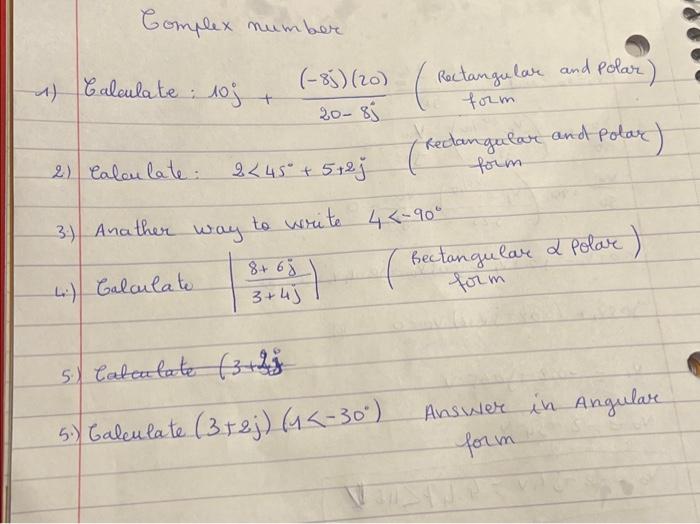 Complex number
1) Calculate : 10j + (-8j)(20) / 20-8j ( Rectangular and Polar ) form
2) Calculate : 2<45° + 5+2j ( Rectangular and Polar ) form
3.) Anather way to write 4<-90°
4.) Calculate | 8+6j / 3+4j | ( Rectangular & Polar ) form
5.) Calculate (3+2j
5.) Calculate (3+2j) (4<-30°) Answer in Angular form